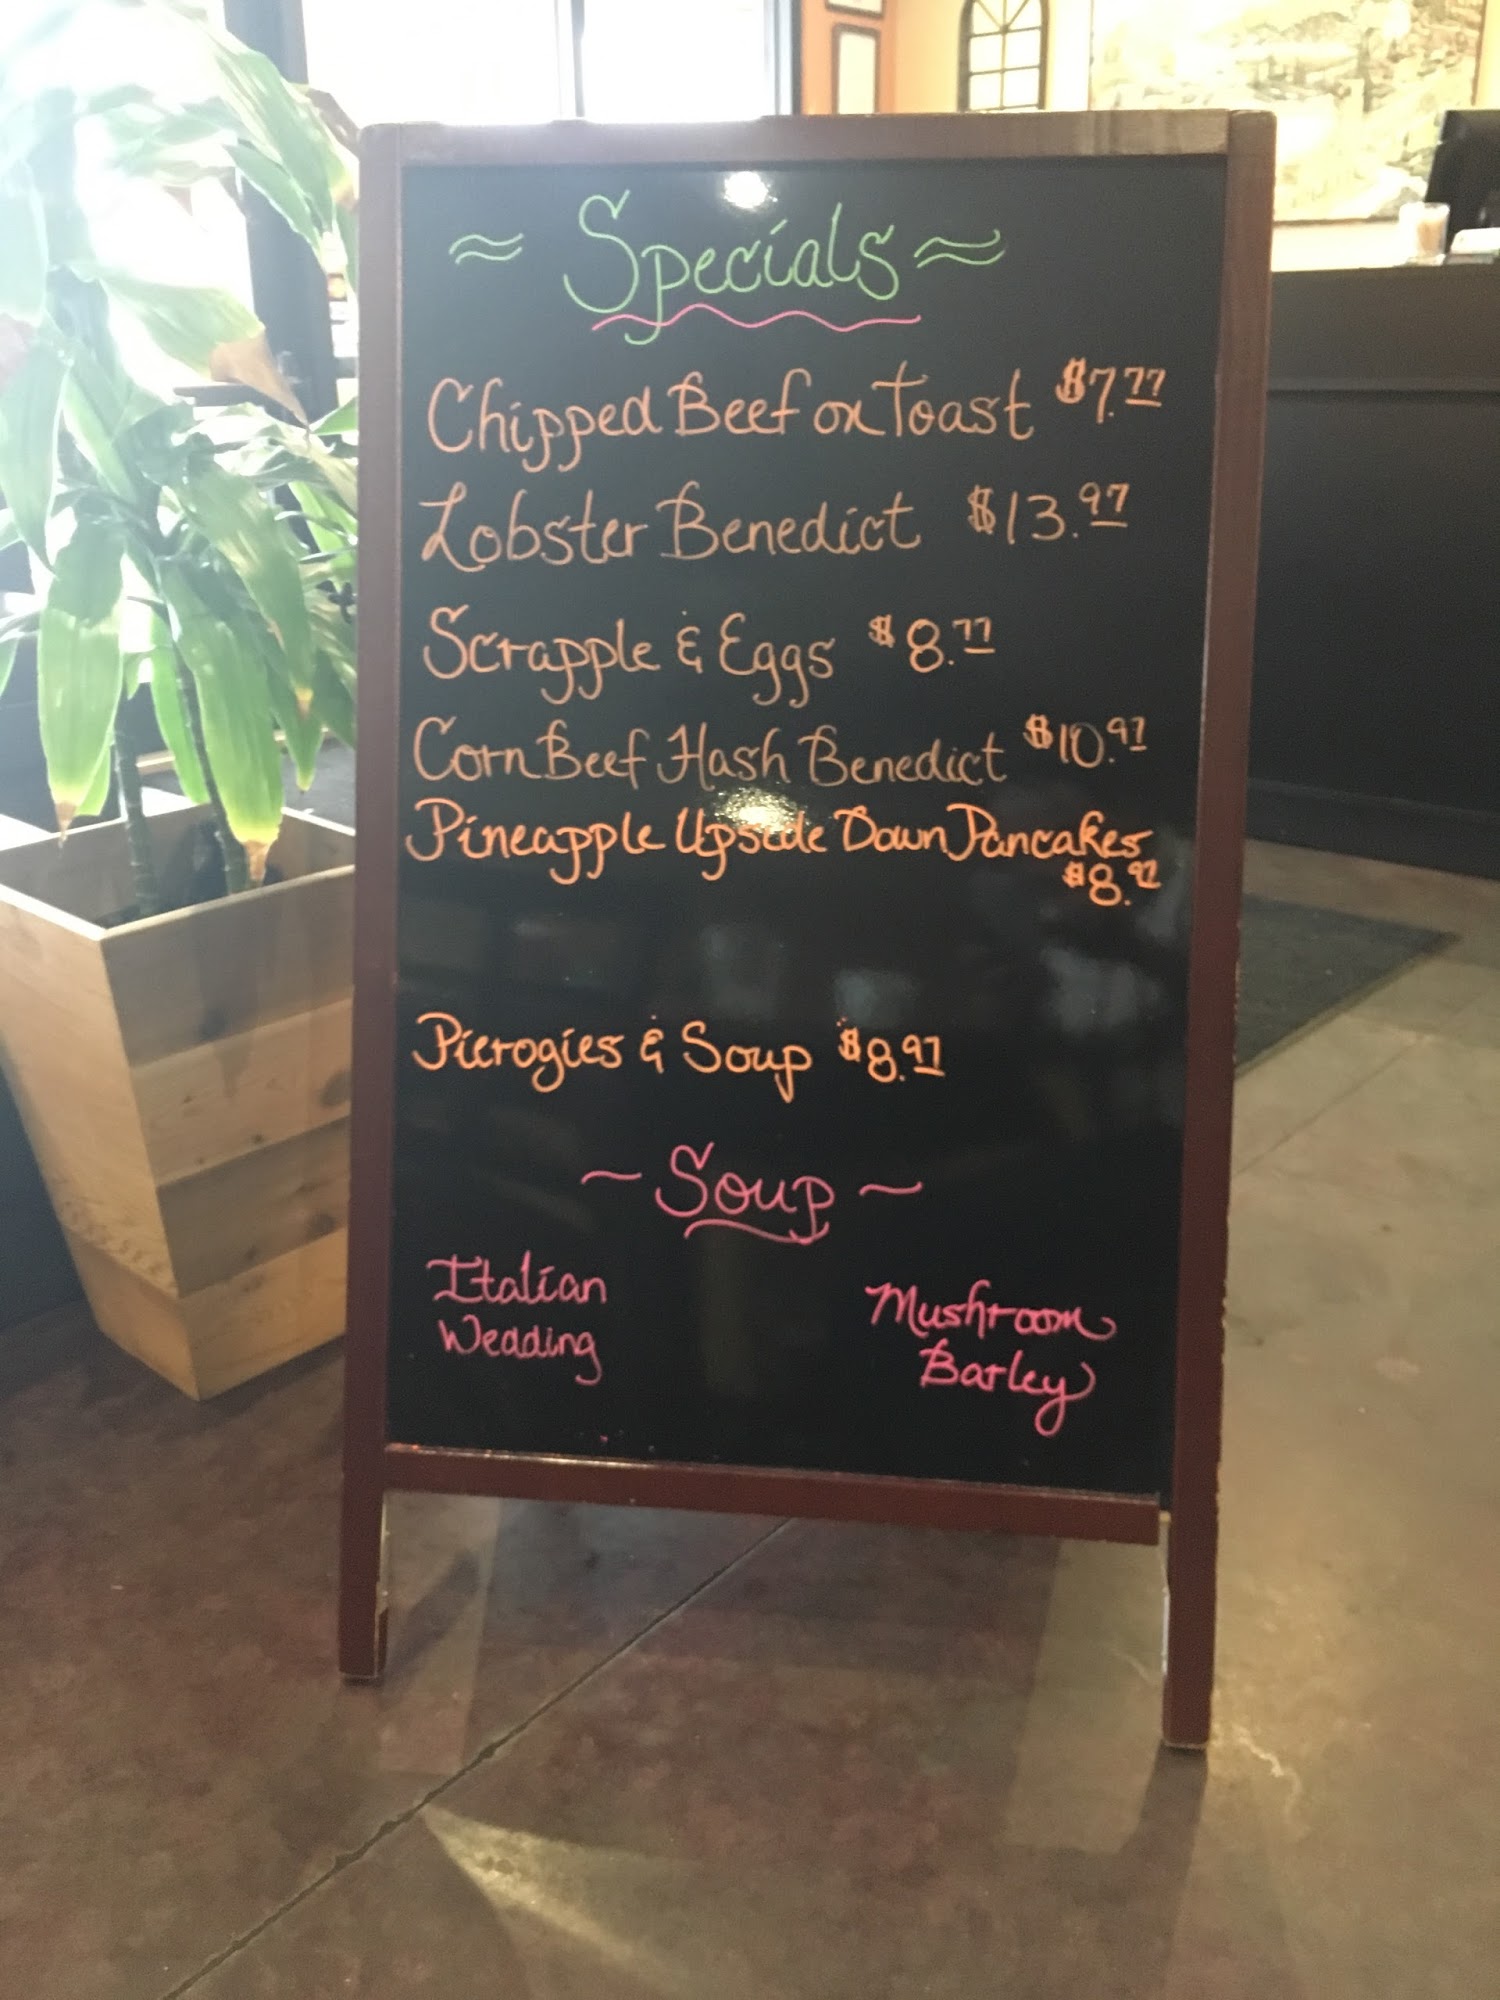 ≈ Specials ≈
Chipped Beef on Toast $7.77
Lobster Benedict $13.97
Scrapple & Eggs $8.77
Corn Beef Hash Benedict $10.97
Pineapple Upside Down Pancakes
$8.97
Pierogies & Soup $8.97
~ Soup ~
Italian
Wedding
Mushroom
Barley